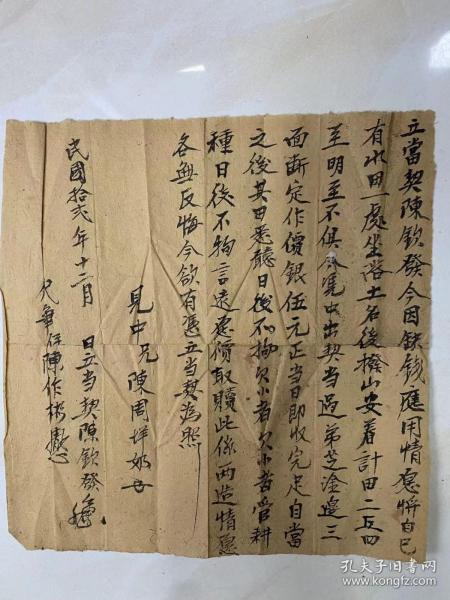 立當契陳欽發今因缺錢應用情愿將自己
有水田一處坐落土名後撥山安着計田二丘四
至明至不俱今凴中出契当過弟芝淦邊三
面断定作價銀伍元正当日即收完足自當
之後其田悉聽日後不拘欠小者欠小者管耕
種日後不拘言遠愿價取贖此係两造情愿
各無反悔今欲有凴立当契為照
見中兄陳周垟奶
民國拾弍年十二月 日立当契陳欽發
代筆任陳作彬
孔夫子旧书网
www.kongfz.com